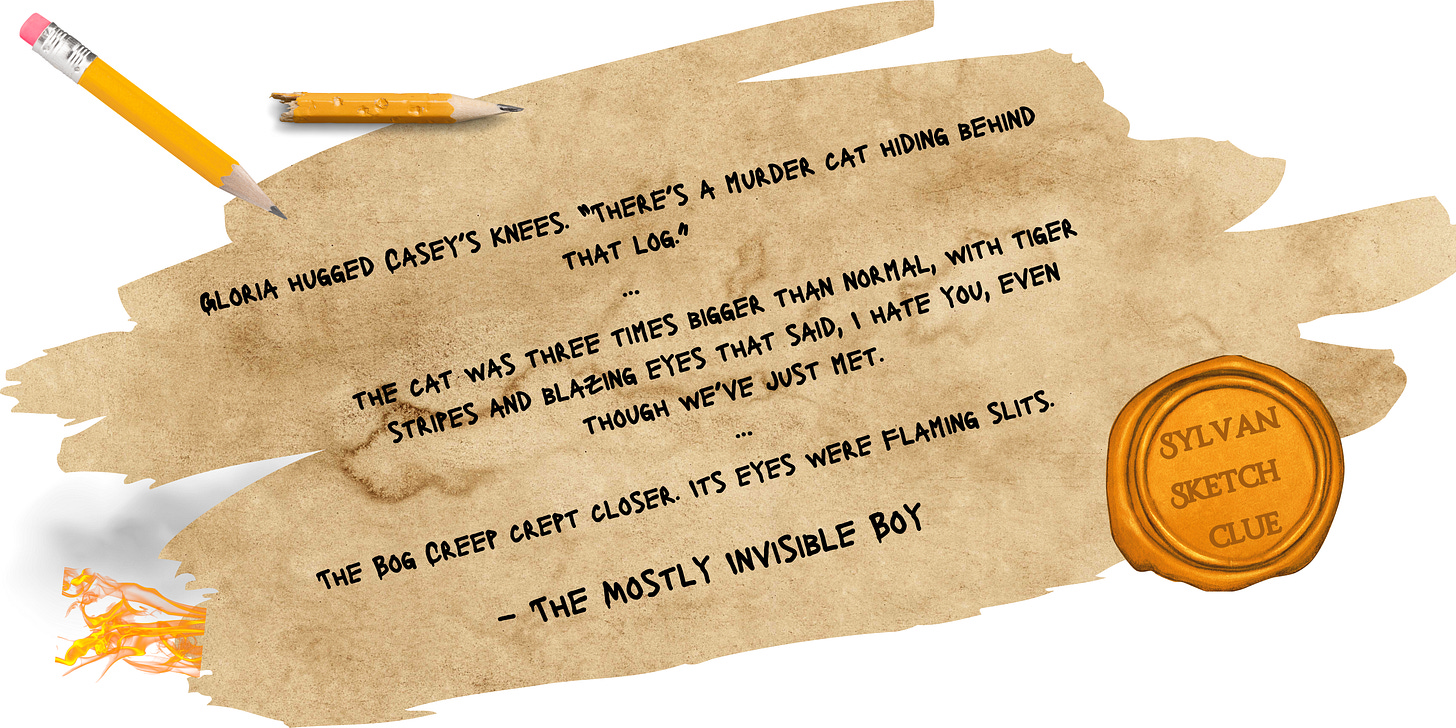 GLORIA HUGGED CASEY'S KNEES. "THERE'S A MURDER CAT HIDING BEHIND
THAT LOG."
...
THE CAT WAS THREE TIMES BIGGER THAN NORMAL, WITH TIGER
STRIPES AND BLAZING EYES THAT SAID, I HATE YOU, EVEN
THOUGH WE'VE JUST MET.
...
THE BOG CREEP CREPT CLOSER. ITS EYES WERE FLAMING SLITS.
– THE MOSTLY INVISIBLE BOY
SYLVAN
SKETCH
CLUE